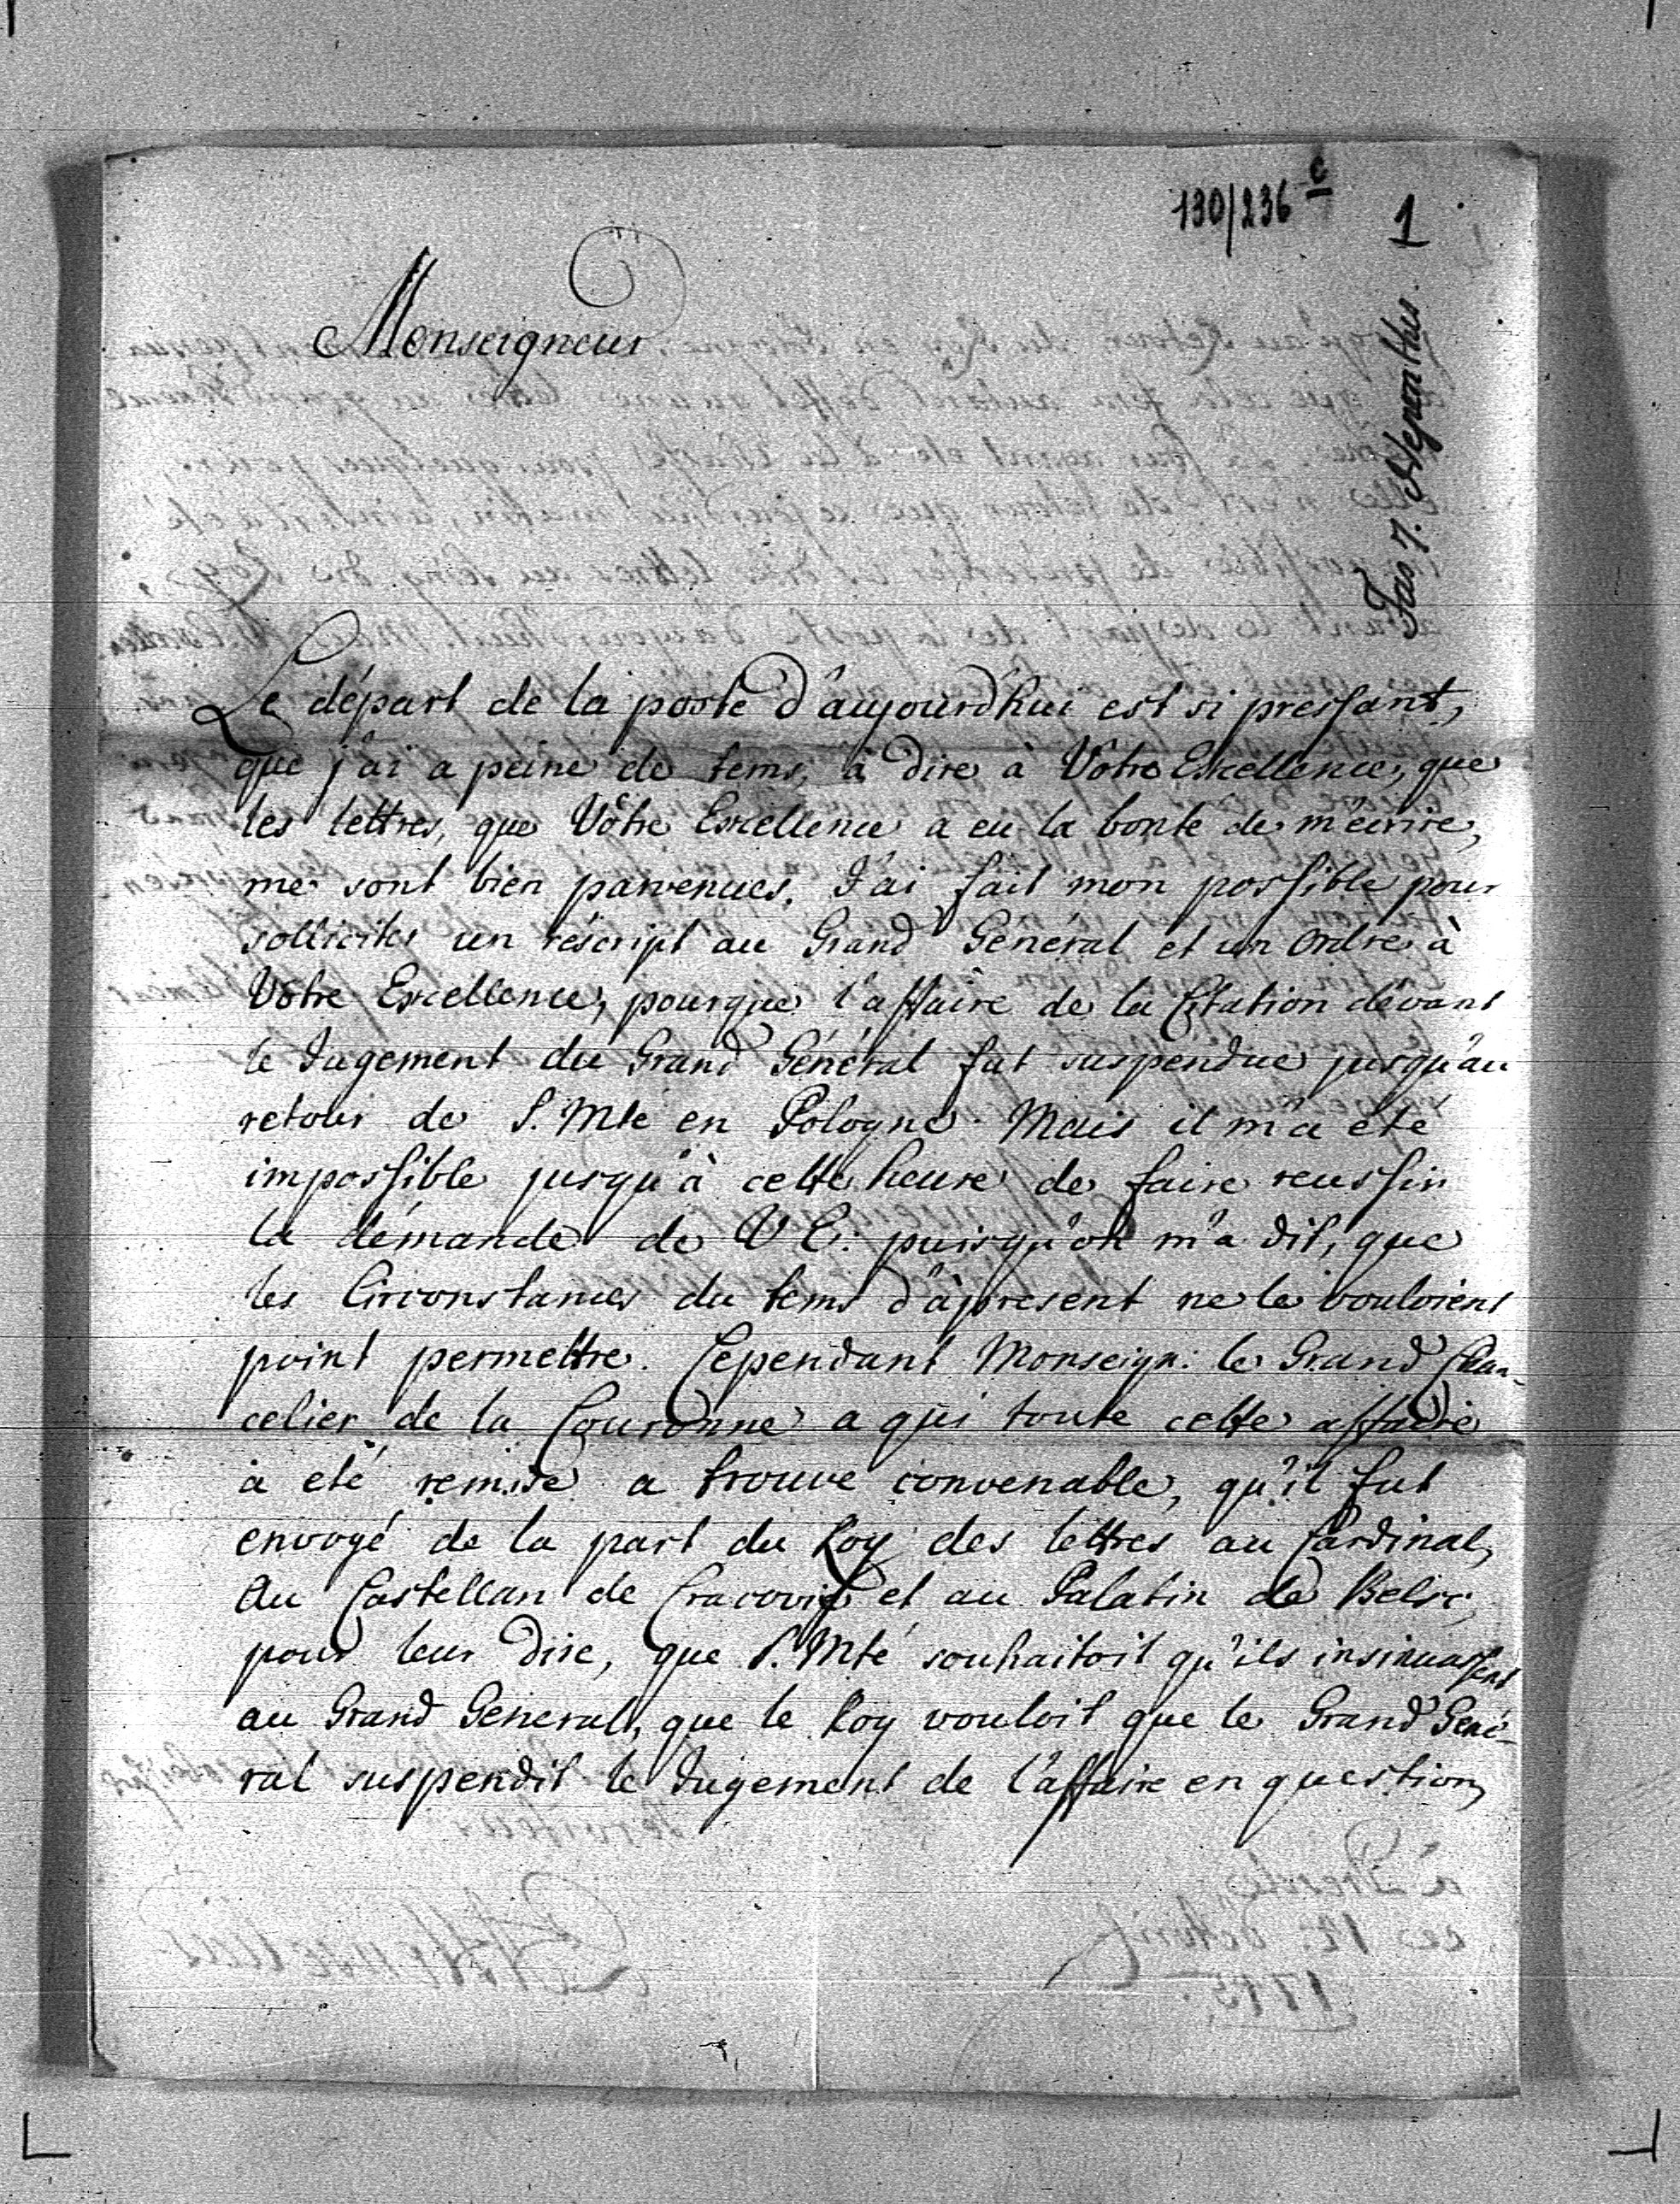 130/236 c
1
Fas 7.
Monseigneur
Le départ de la poste d'aujourd'hui est si pressant,
que j'ai a peine de tems, a dire à Vôtre Excellence, que
les lettres, que Vôtre Excellence a eu la bonté de m'ecrire,
me sont bien parvenues. J'ai fait mon possible pour
solliciter un réscript au Grand Général et un Ordre à
Vôtre Excellence, pourque l'affaire de la Citation devant
le Jugement du Grand Général fut suspendue jusqu'au
retour de S. Mté en Pologne. Mais il m'a été
impossible jusqu'à cette heure de faire reussir
la demande de V E. puisqu'on m'a dit, que
les Circonstances du tems d'àpresent ne le vouloient
point permettre. Cependant Monseign: le Grand Chan-
celier de la Couronne a qui toute cette affaire
a eté remise a trouve convenable, qu'il fut
envoyé de la part du Roy des lettres au Cardinal,
Au Castellan de Cracovie et au Palatin de Belsc,
pour leur dire, que S. Mté souhaitoit qu'ils insinuassent
au Grand General, que le Roy vouloit que le Grand Gené-
ral suspendit le Jugement de l'affaire en question,